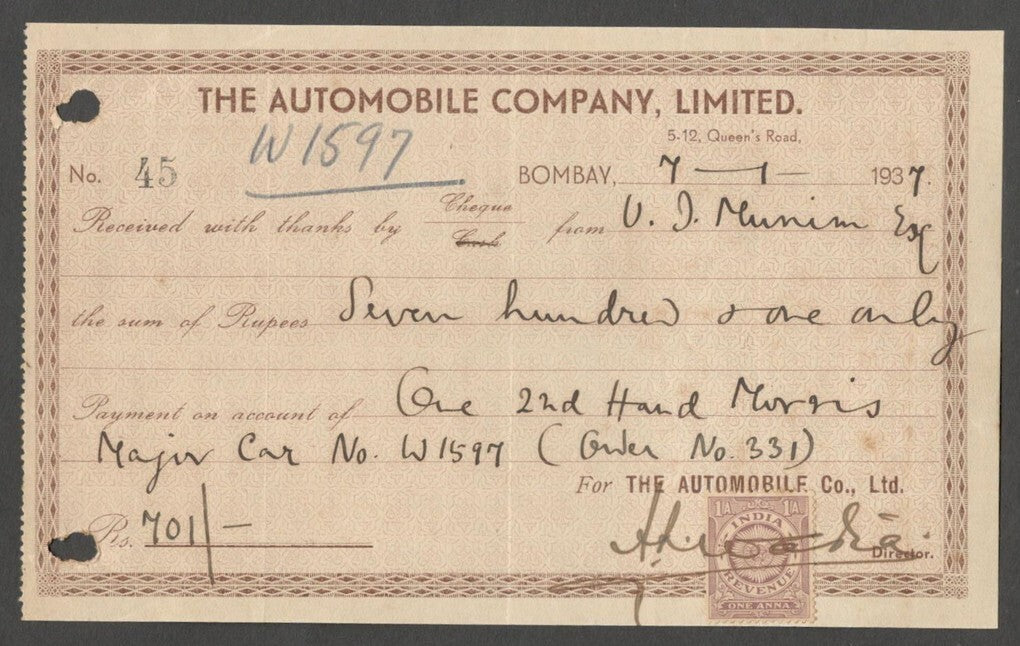 THE AUTOMOBILE COMPANY, LIMITED.
5-12, Queen's Road,
W1597
No. 45
BOMBAY, 7 — 1 — 1937.
Received with thanks by Cheque Cash from V. J. Munim Esq
the sum of Rupees Seven hundred & one only
Payment on account of One 2nd Hand Morris
Major Car No. W1597 (Order No. 331)
For THE AUTOMOBILE Co., Ltd.
Rs. 701/-
Director.
1A 1A
INDIA
REVENUE
ONE ANNA